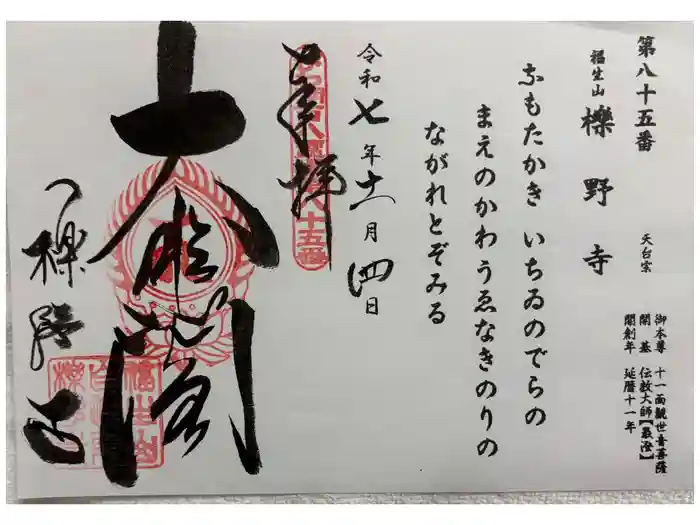 第八十五番
福生山 櫟野寺 天台宗
御本尊 十一面観世音菩薩
開基 伝教大師【最澄】
開創年 延暦十一年
なもたかき いちゐのでらの
まえのかわうゑなきのりの
ながれとぞみる
令和七年十一月四日
奉拝
大悲閣
櫟野寺